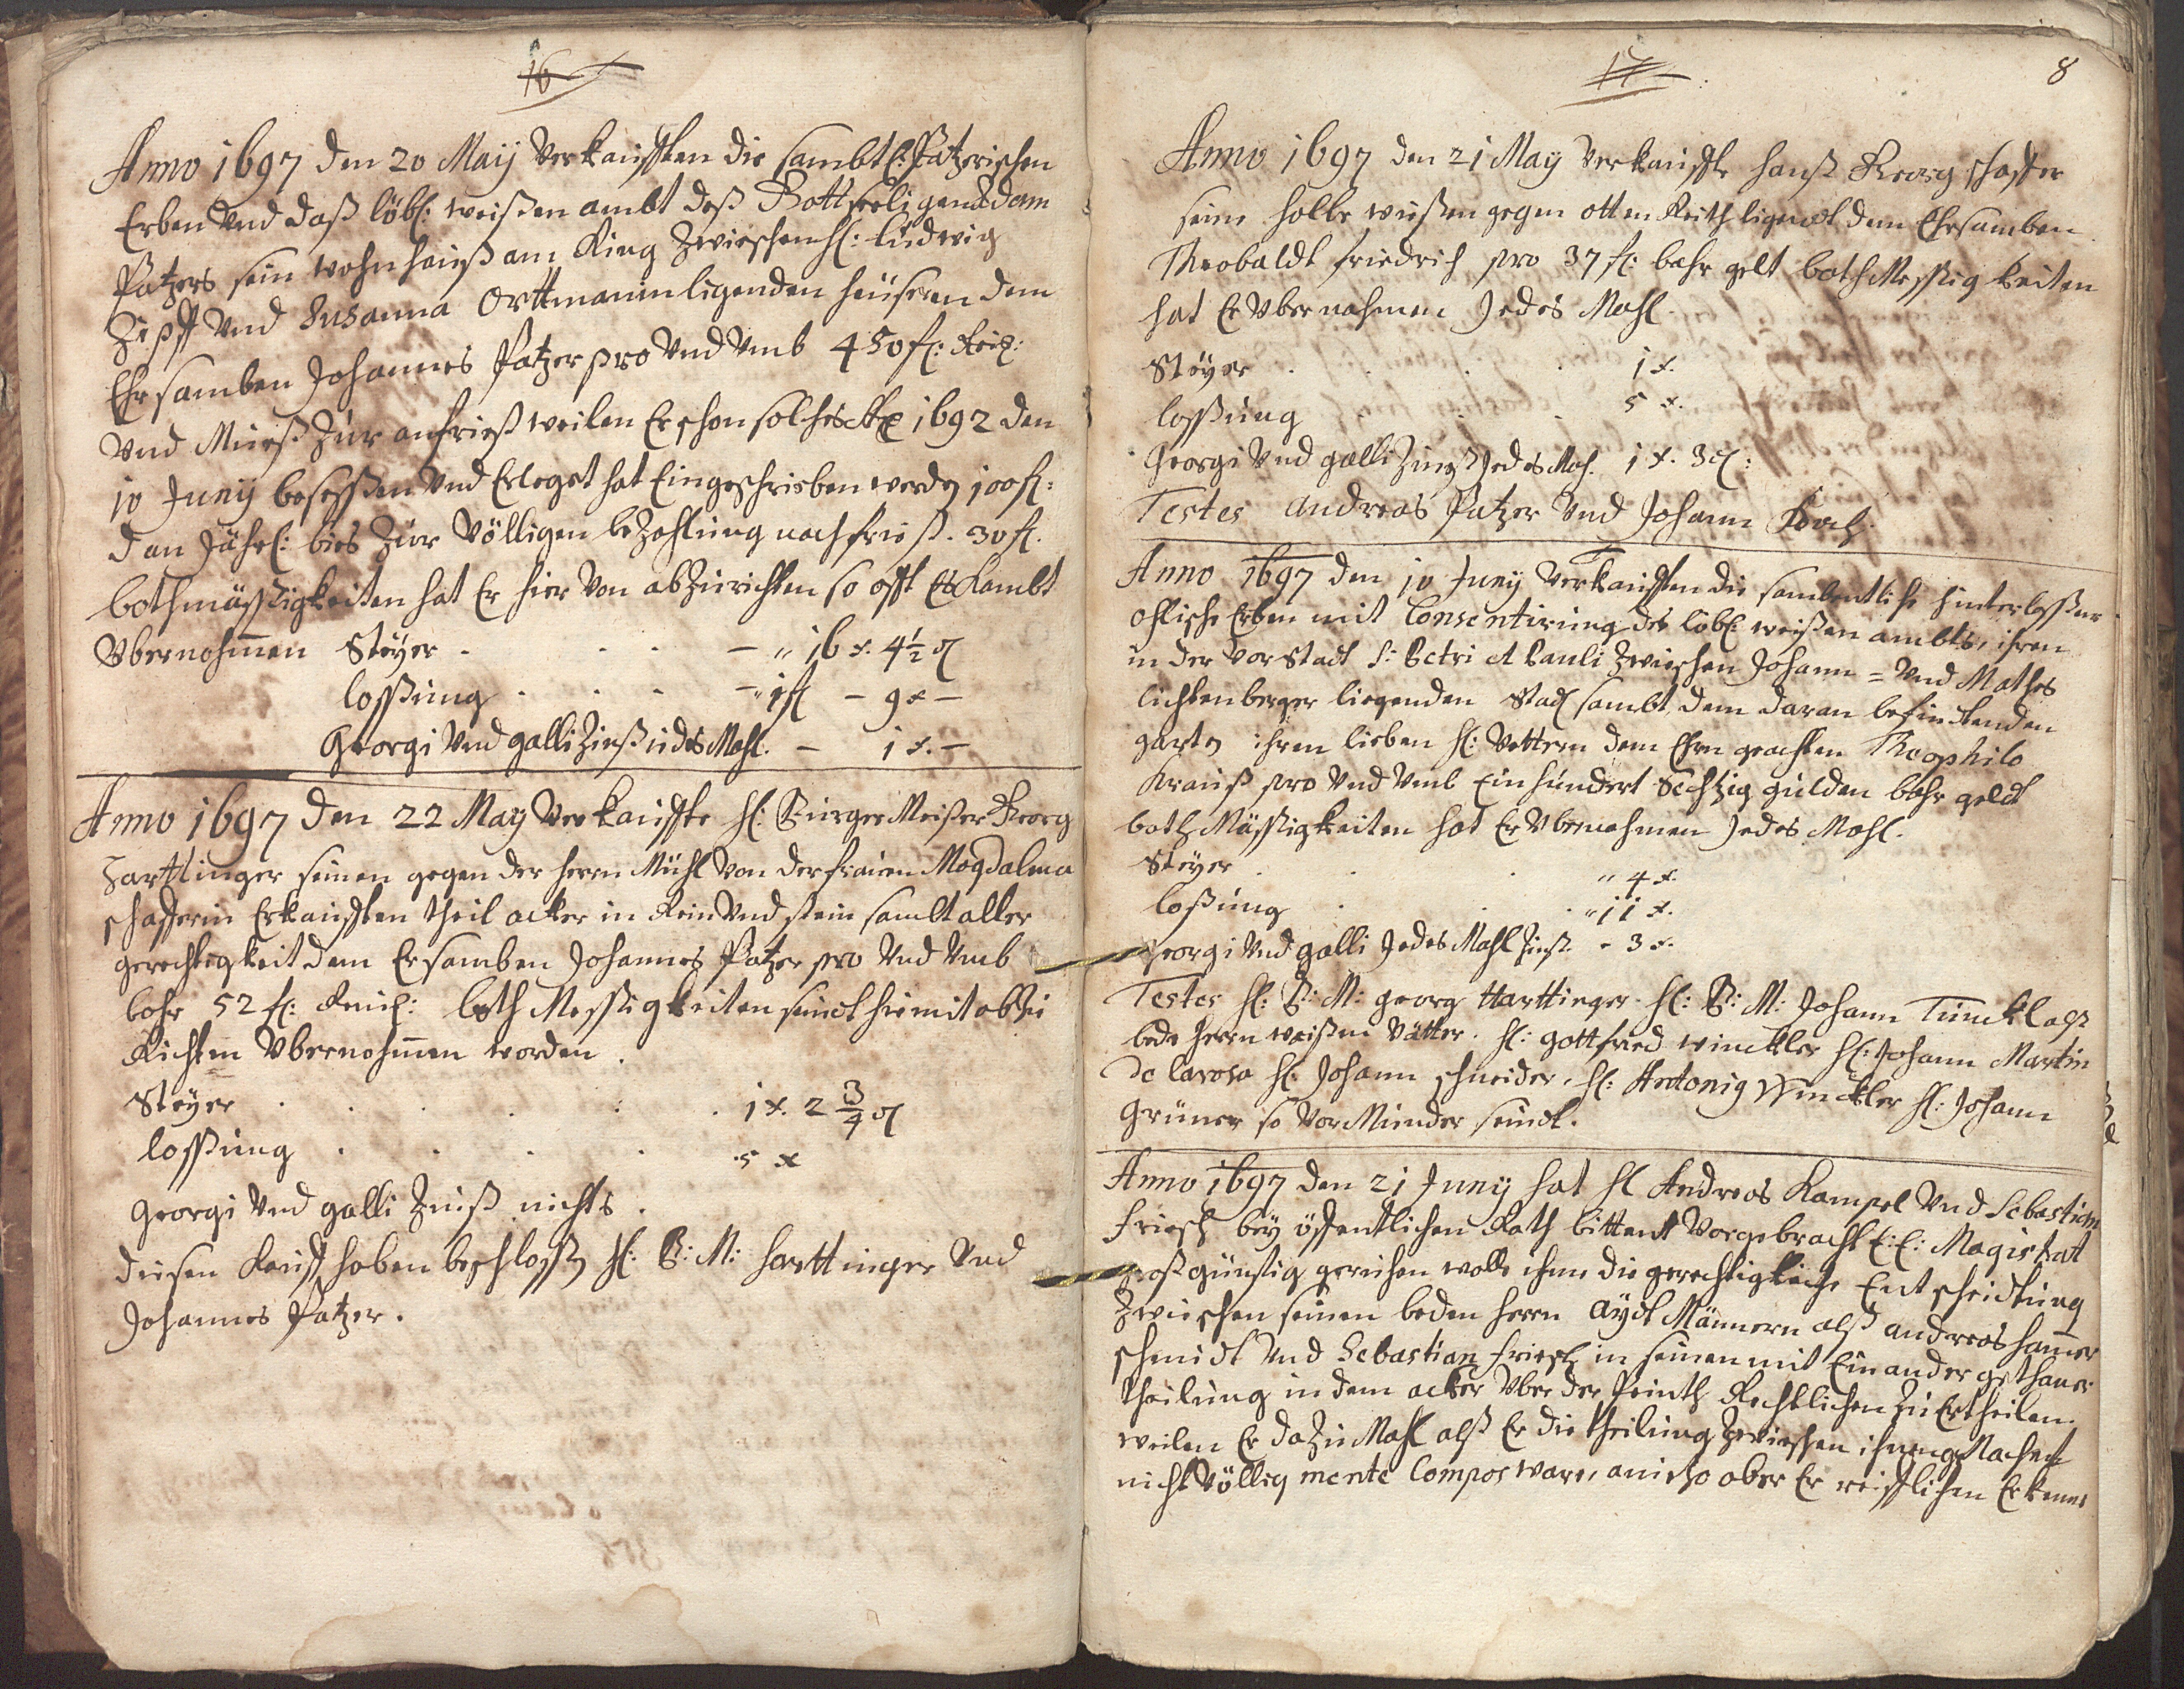 16
Anno 1697 den 20 Maij Verkaufften die sambtl: Patzerischen
Erben Und daß löbl: weißen ambt deß Gottseeligen Adam
Patzers sein wohnhauß am Ring Zwischen H: Ludwig
Zipff Und Susanna Orttmanin ligenden heüsern dem
Ehrsamben Johannes Patzer pro Und Umb 450 fl: Rein:
Und Mueß Zur anfrieß weilen Er schon solches 1692 den
10 Junij besessen Und Erlegst hat Eingeschrieben werden 100 fl:
dan Jährl: bies Zur Völligen beZahlung nachfrieß. 30 fl.
bothmässigkeiten hat Er hier Von abZurichten so offt Es kombt
Ubernohmen Steyer . . . – " 16 x. 4½ ₰
lossung . . . – " 1 fl – 9 x –
Georgi Und galli Zinß iedes Mahl. – 1 x. –
Anno 1697 den 22 May Verkauffte H: Burger Meister Georg
Harttinger seinen gegen der herrn Mühl Von der frauen Magdalena
schafferin Erkaufften theil acker in Rein Und stein sambt aller
gerechtigkeit dem Ersamben Johannes Patzer pro Und Umb
bahr 52 fl: Reich: both Messigkeiten seindt hiemit abZu
Richten Ubernohmen worden.
Steyer . . . . . 1 x. 2 3/4 ₰
lossung . . . . 5 x
Georgi Und galli Zinß nichts.
diesen Kauff haben beschlossen H: B: M: harttinger Und
Johannes Patzer.
17
8
Anno 1697 den 21 May Verkauffte hanß Georg schaffer
seine halbe wießen gegen otten Reith ligendt dem Ehrsamben
Theobaldt friedrich pro 37 fl: bahr gelt both Messig keiten
hat Er Ubernohmen Jedes Mahl.
Steyer . . . . 1 x.
lossung . . . 5 x.
Georgi Und galli Zinß Jedes Mahl. 1 x. 3 ₰:
Testes Andreas Patzer Und Johann Koch.
Anno 1697 den 10 Junij Verkaufften die sambentliche hinterlossene
ohlische Erben mit Consentirung des löbl: weißen ambts, ihren
in der Vor Stadt S: Petri et Pauli Zwischen Johann = Und Mathes
lichtenberger liegenden Stadl sambt dem daran befindtenden
garten ihren lieben H: Vettern dem Ehrn geachten Theophilo
Krauß pro Und Umb Einhundert Sechtzig gulden bahr geldt
both Mässigkeiten hat Er Ubernohmen Jedes Mahl.
Steyer . . . " 4 x.
loßung . . . " 11 x.
Georgi Und galli Jedes Mahl Zinß - 3 x.
Testes H: B: M: Georg Harttinger. H: B: M: Johann Tünckl alß
bede herrn weißen Vätter. H: Gottfried winckler H: Johann Martin
de larosa H: Johann schneider, H: Antonig Winckler H: Johann
Grüner so Vor Münder seindt.
Anno 1697 den 21 Junij hat H Andreas Kampel Und Sebastian
friesch bey öffentlichen Rath bittent Vorgebracht E: E: Magistrat
großgünstig geruhen wolle ihme die gerechtigkliche Entscheidtung
Zwischen seinen beden herrn Aydt Männern alß andreas hamer
schmidt Und Sebastian friesch in seinen mit Ein ander gethaner
theilung in dem acker Uber der Peinth Rechtlichen Zu Ertheilen.
weilen Er daZu Mahl alß Er die theilung Zwischen ihnen gMacht
nicht Völlig mente Compos ware, anietzo aber Er reifflichen Erkenne